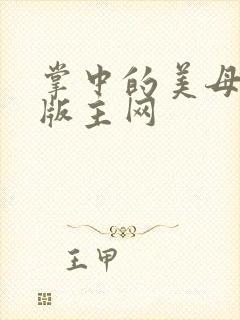 掌中的美母
版主网
王甲